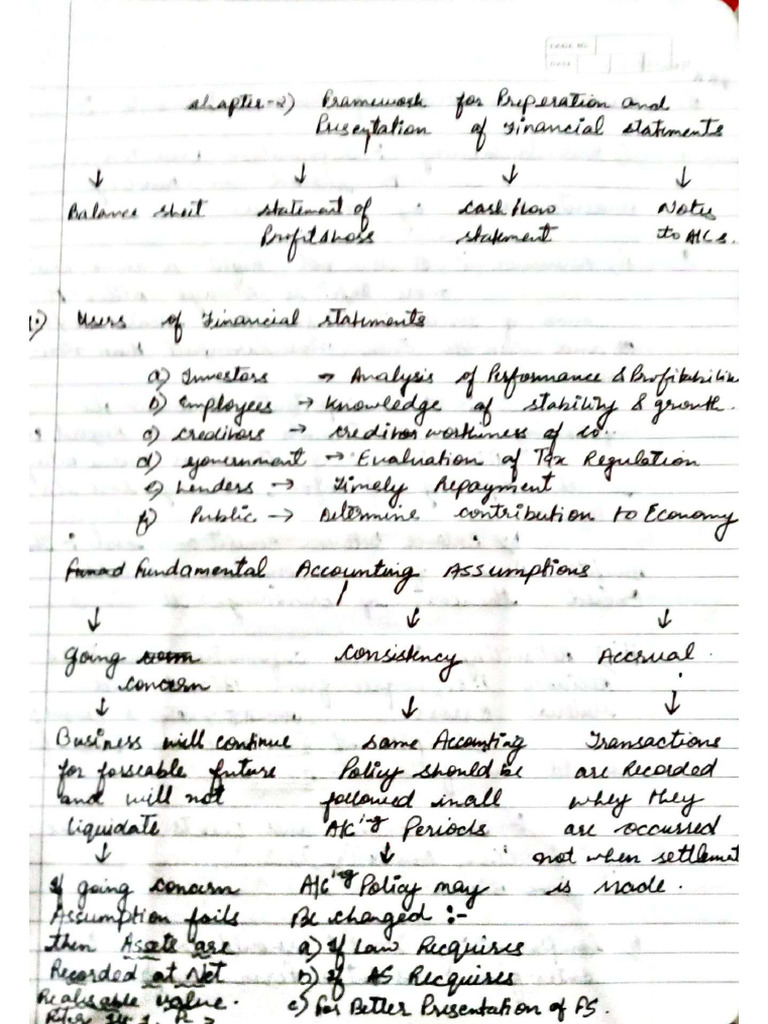 Chapter-2) Framework for Preperation and
Presentation of Financial Statements
↓ ↓ ↓ ↓
Balance sheet Statement of Cash flow Notes
Profit & Loss statement to A/Cs.
1.) Users of Financial statements
a) Investors → Analysis of Performance & Profitability
b) Employees → Knowledge of stability & growth.
c) creditors → creditor worthiness of co.
d) government → Evaluation of Tax Regulation
e) Lenders → Timely Repayment
f) Public → Determine contribution to Economy
Fundamental Accounting Assumptions
↓ ↓ ↓
Going Consistency Accrual.
concern
↓ ↓ ↓
Business will continue Same Accounting Transactions
for forseable future Policy should be are Recorded
and will not followed in all whey they
liquidate A/C ing Periods are occurred
↓ ↓ not when settlemet
If going concern A/C ing Policy may is made.
Assumption fails Be changed :-
then Assets are a) If Law Recquires
Recorded at Net b) If AS Recquires
Realisable value. c) For Better Presentation of FS.